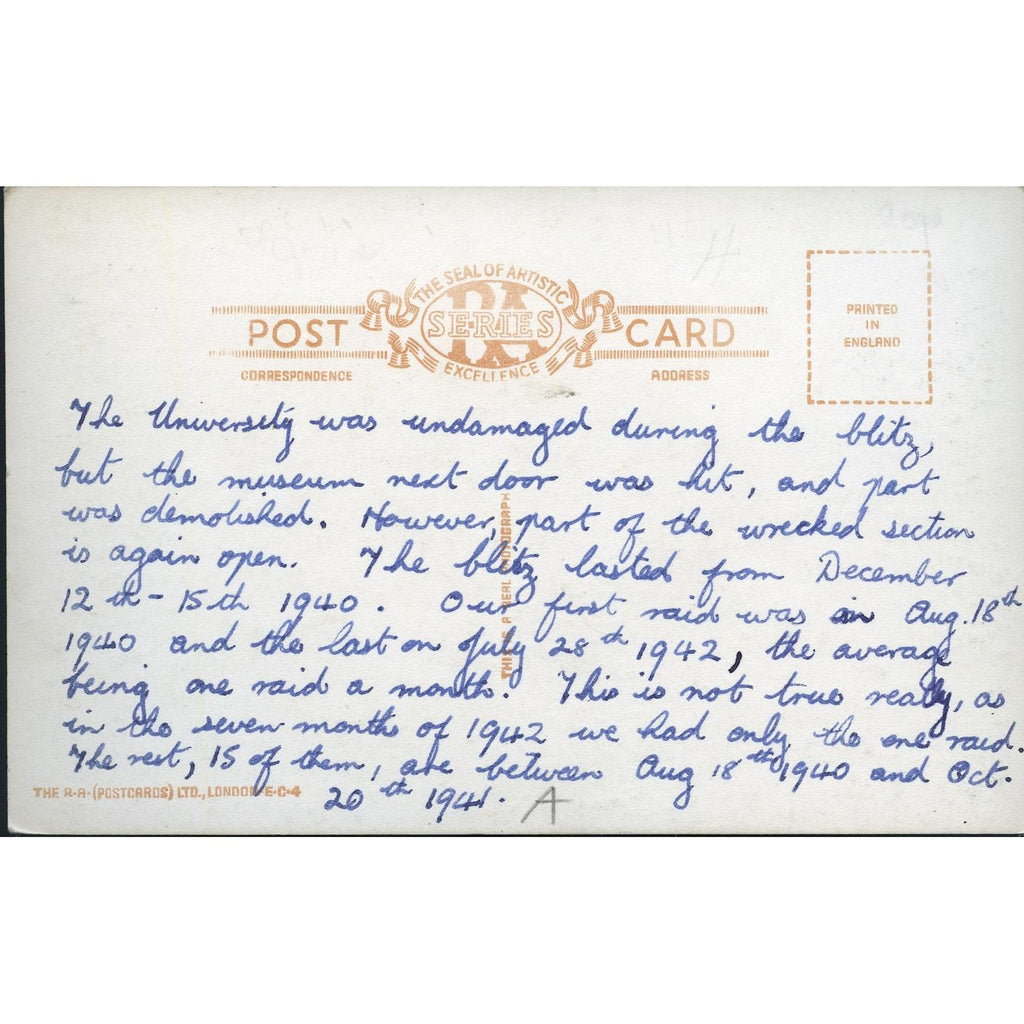 THE SEAL OF ARTISTIC
RA
POST SERIES CARD
EXCELLENCE
CORRESPONDENCE ADDRESS
PRINTED
IN
ENGLAND
The University was undamaged during the blitz,
but the museum next door was hit, and part
was demolished. However, part of the wrecked section
is again open. The blitz lasted from December
12th - 15th 1940. Our first raid was in Aug. 18th
1940 and the last on July 28th 1942, the average
being one raid a month. This is not true really, as
in the seven months of 1942 we had only the one raid.
The rest, 15 of them, are between Aug 18th 1940 and Oct.
20th 1941.
THIS IS A REAL PHOTOGRAPH
THE R-A-(POSTCARDS) LTD., LONDON E-C-4
A